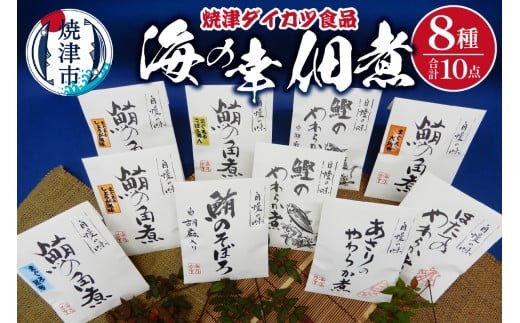 焼津市
焼津ダイカツ食品
海の幸 佃煮
8種
合計10点
自慢の味
鮪の角煮
自慢の味
鮪の角煮
自慢の味
鰹の
やわらか煮
自慢の味
鮪の角煮
自慢の味
鮪の角煮
自慢の味
鰹の
やわらか煮
自慢の味
鮪の角煮
自慢の味
鮪のそぼろ
白胡麻入り
自慢の味
あさりの
やわらか煮
自慢の味
ほたての
やわらか煮